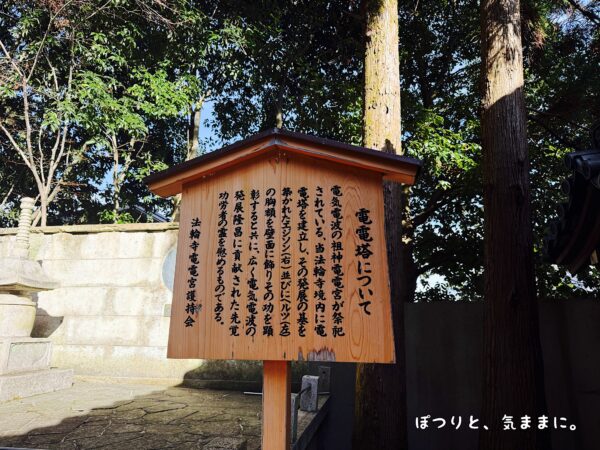 電電塔について
電気電波の祖神電電宮が祭祀
されている。当法輪寺境内に電
電塔を建立し、その発展の基を
築かれたエジソン(右)並びにヘルツ(左)
の胸額を壁面に飾りその功を顕
彰すると共に、広く電気電波の
発展隆昌に貢献された先覚
功労者の霊を慰めるものである。
法輪寺電電宮護持会
ぽつりと、気ままに。